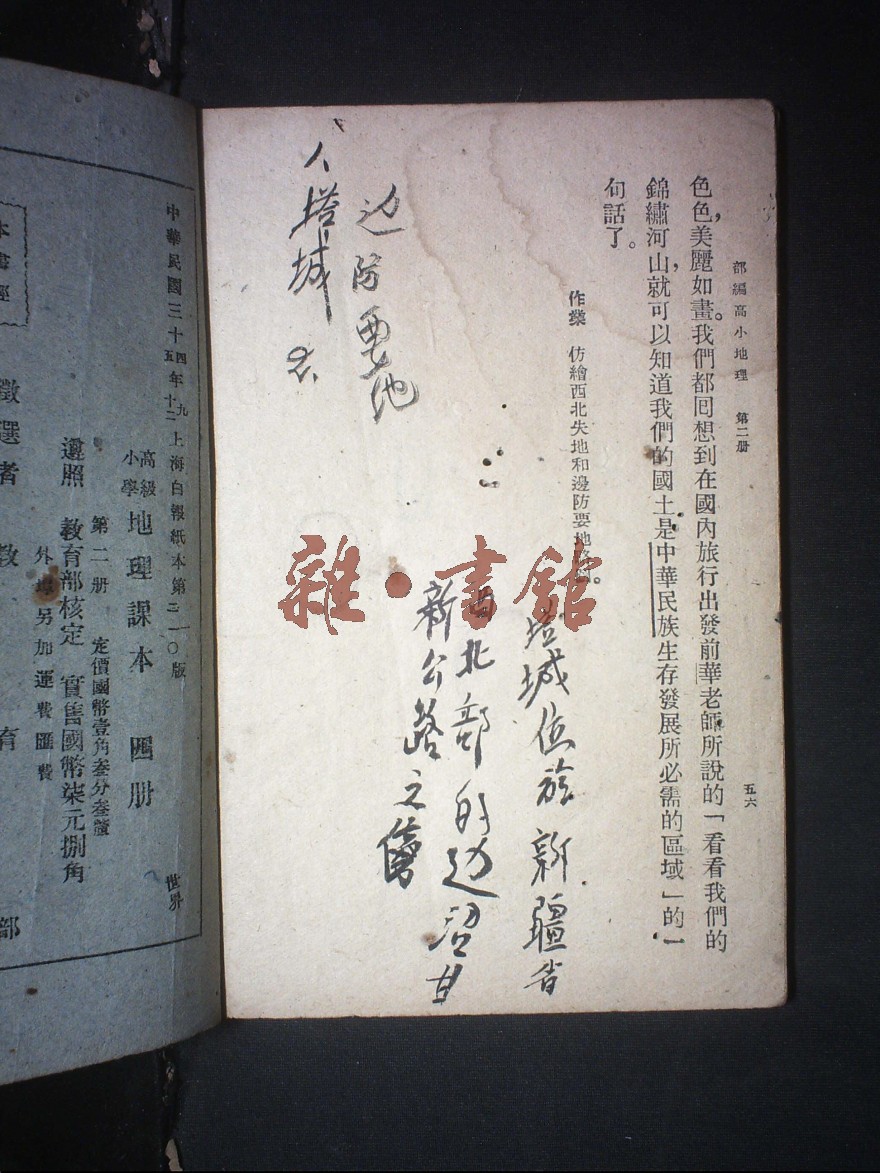 部編高小地理　第二册
五六
色色，美麗如畫。我們都囘想到在國內旅行出發前華老師所說的「看看我們的
錦繡河山，就可以知道我們的國土是中華民族生存發展所必需的區域」的一
句話了。
作業　仿繪西北失地和邊防要地
塔城位於新疆省
西北部的边沿甘
新公路之傍
边防要地
人塔城
雜·書館
中華民國三十四年九
五年十二
上海白報紙本第二一〇版
高級小學
地理課本　四册
第二册　定價國幣壹角叁分叁釐
遵照教育部核定　實售國幣柒元捌角
外埠另加運費匯費
世界
本書經
徵選者　教育部